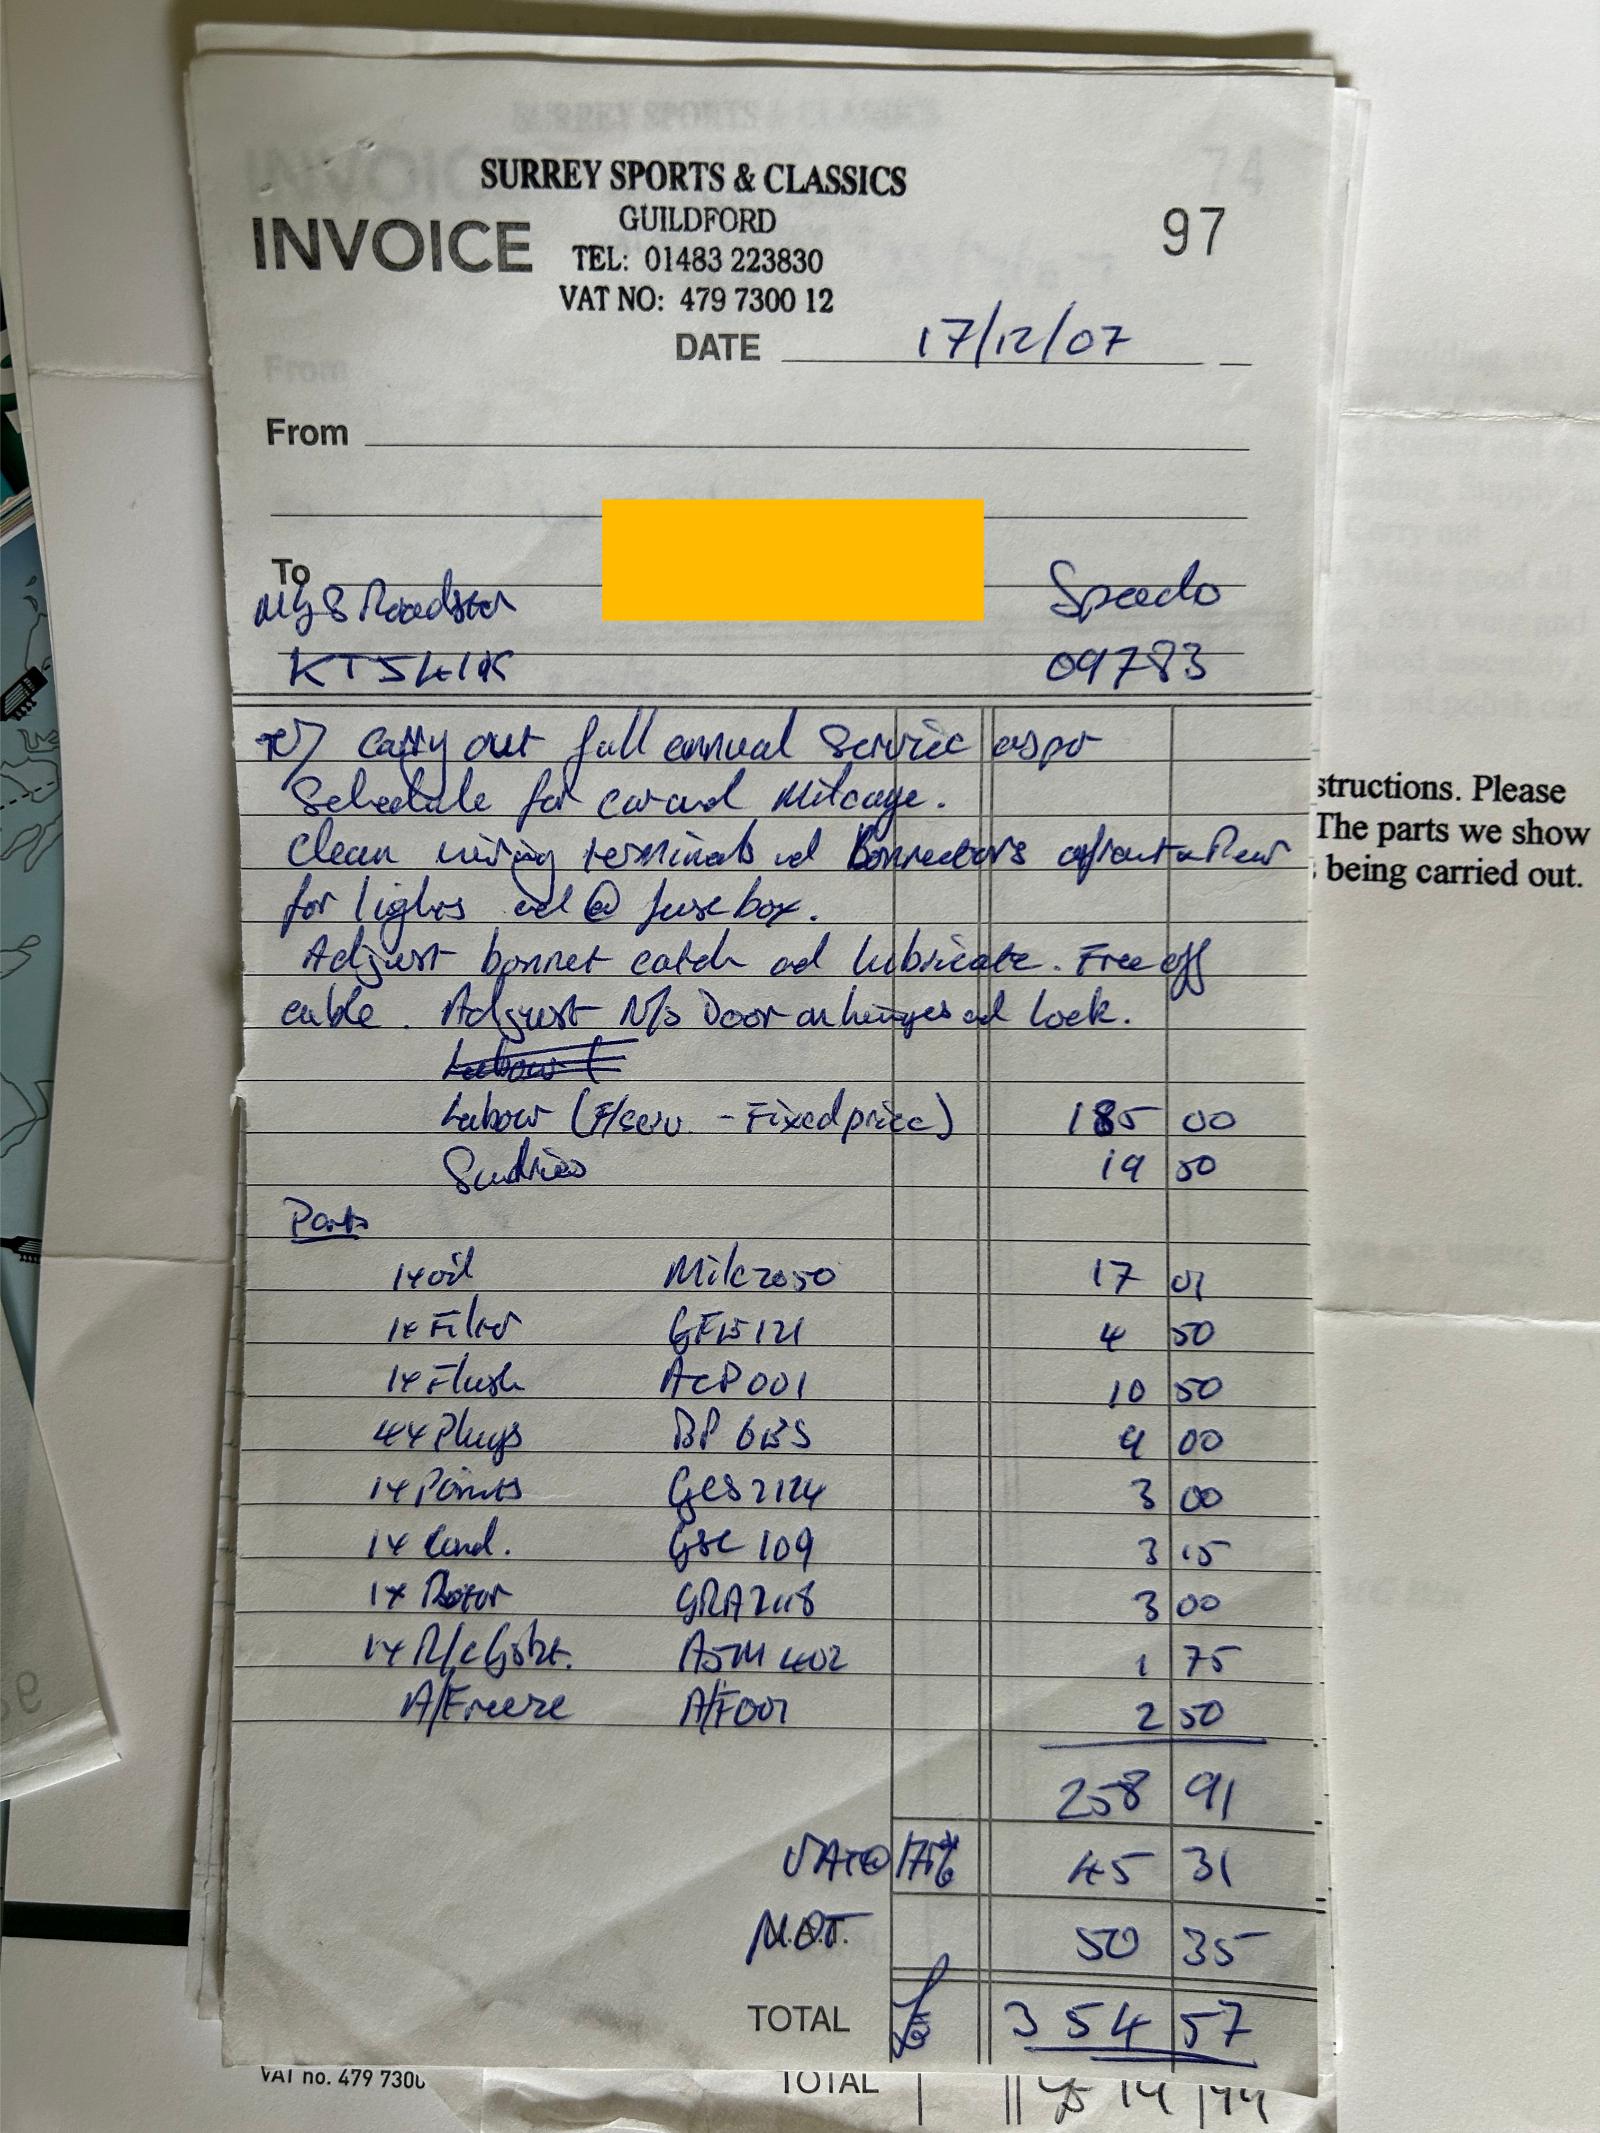 SURREY SPORTS & CLASSICS
GUILDFORD
INVOICE
TEL: 01483 223830
VAT NO: 479 7300 12
97
74
DATE 17/12/07
From
To
MGB Roadster
Speedo
09783
To/ Carry out full annual Service as per
Schedule for car and Mileage.
Clean wiring terminals ad Connectors @ front & Rear
for lights ad @ fuse box.
Adjust bonnet catch ad lubricate. Free off
cable. Adjust N/S Door on hinges ad lock.
Labour (
Labour (F/serv. - Fixed price) 185 00
Sundries 19 50
Parts
1x oil 17 01
1x Filter 4 50
1x Flush ACP001 10 50
4x Plugs BP6ES 9 00
1x Points GCS2124 3 00
1x Cond. GSC109 3 15
1x Rotor GRA2118 3 00
1x R/c Gskt. 1 75
A/Freeze A/F001 2 50
258 91
VAT @ 17.5% 45 31
M.O.T. 50 35
TOTAL £ 354 57
structions. Please
The parts we show
being carried out.
VAT no. 479 730
TOTAL